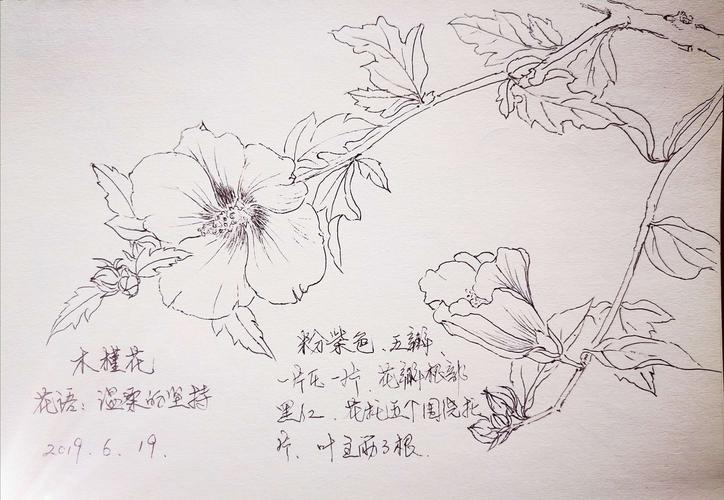 木槿花
花语：温柔的坚持
2019.6.19.
粉紫色、五瓣、
一片压一片、花瓣根部
黑红、花托五个围绕托
片、叶